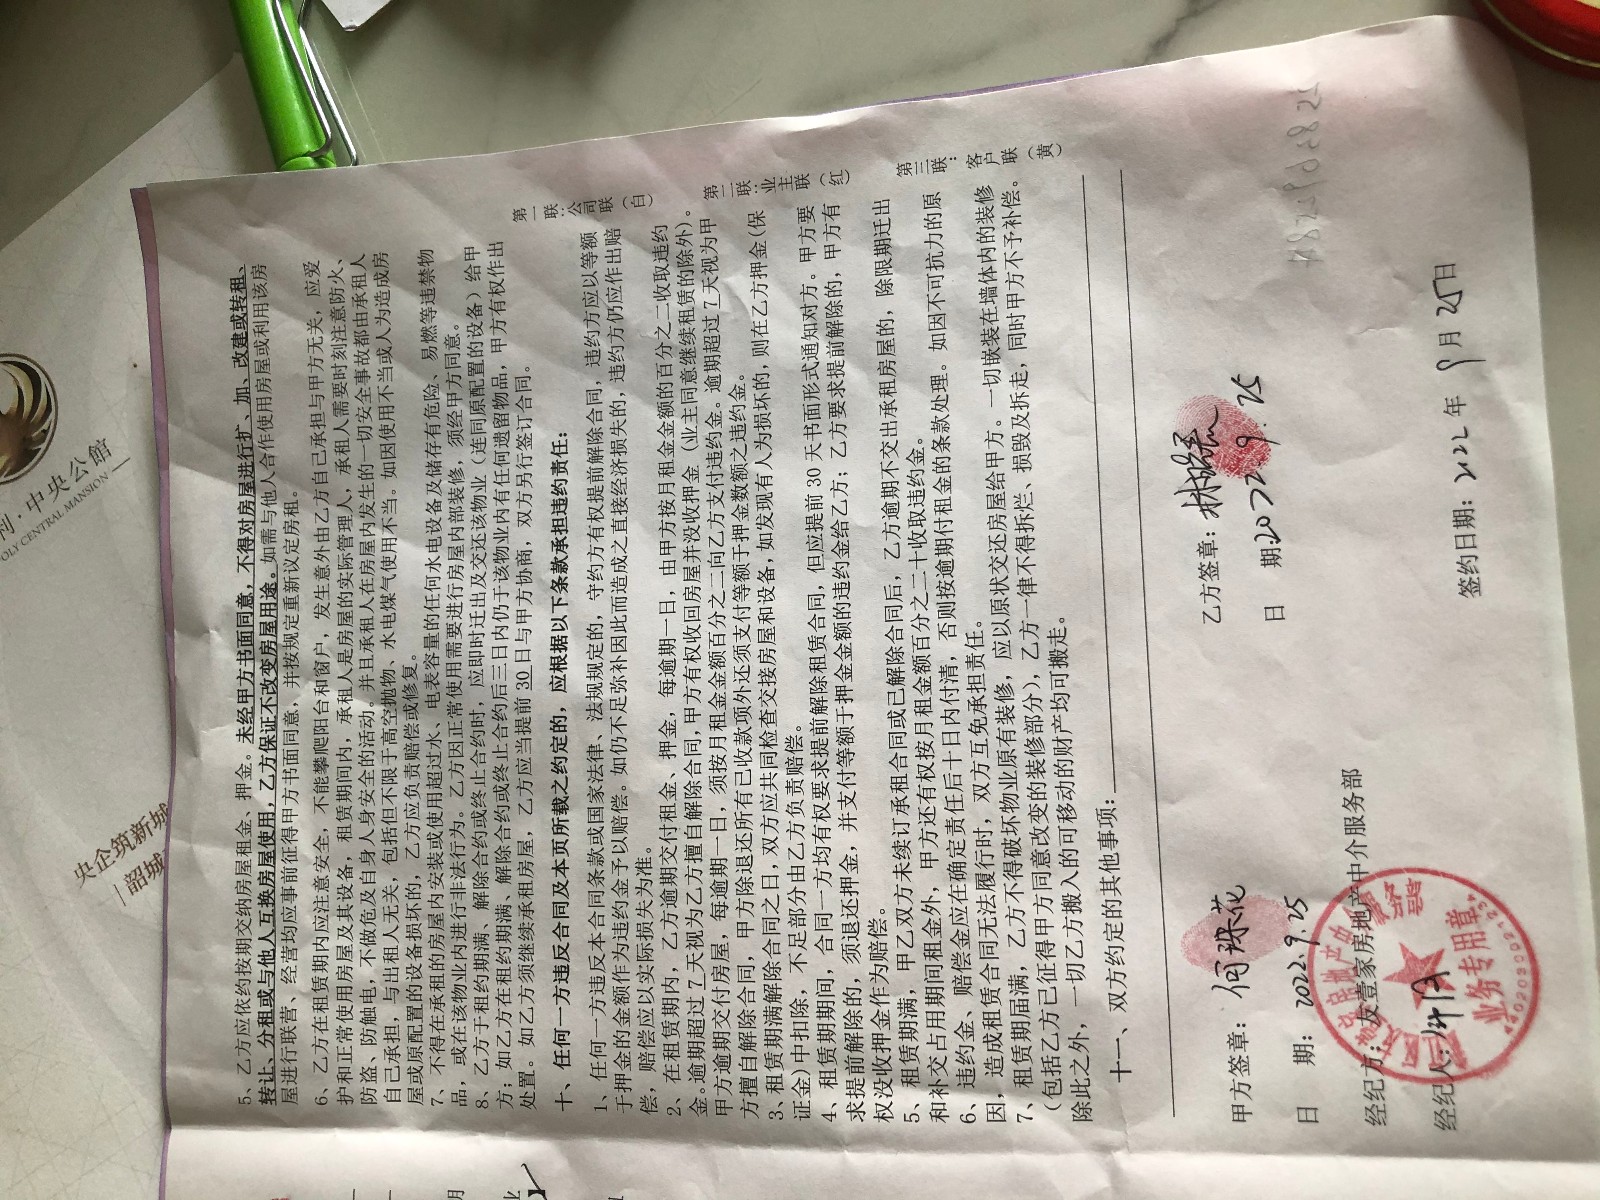 5、乙方应依约按期交纳房屋租金、押金。未经甲方书面同意，不得对房屋进行扩、加、改建或转租、
转让、分租或与他人互换房屋使用，乙方保证不改变房屋用途。如需与他人合作使用房屋或利用该房
屋进行联营、经营均应事前征得甲方书面同意，并按规定重新议定房租。
6、乙方在租赁期内应注意安全，不能攀爬阳台和窗户，发生意外由乙方自己承担与甲方无关，应爱
护和正常使用房屋及其设备，租赁期间内，承租人是房屋的实际管理人，承租人需要时刻注意防火、
防盗、防触电，不做危及自身人身安全的活动。并且承租人在房屋内发生的一切安全事故都由承租人
自己承担，与出租人无关，包括但不限于高空抛物、水电煤气使用不当。如因使用不当或人为造成房
屋或原配置的设备损坏的，乙方应负责赔偿或修复。
7、不得在承租的房屋内安装或使用超过水、电表容量的任何水电设备及储存有危险、易燃等违禁物
品，或在该物业内进行非法行为。乙方因正常使用需要进行房屋内部装修，须经甲方同意。
8、乙方于租约期满、解除合约或终止合约时，应即时迁出及交还该物业（连同原配置的设备）给甲
方；如乙方在租约期满、解除合约或终止合约后三日内仍于该物业内有任何遗留物品，甲方有权作出
处置。如乙方须继续承租房屋，乙方应当提前 30 日与甲方协商，双方另行签订合同。
十、任何一方违反合同及本页所载之约定的，应根据以下条款承担违约责任：
1、任何一方违反本合同条款或国家法律、法规规定的，守约方有权提前解除合同，违约方应以等额
于押金的金额作为违约金予以赔偿。如仍不足弥补因此而造成之直接经济损失的，违约方仍应作出赔
偿，赔偿应以实际损失为准。
2、在租赁期内，乙方逾期交付租金、押金，每逾期一日，由甲方按月租金金额的百分之二收取违约
金。逾期超过 7 天视为乙方擅自解除合同，甲方有权收回房屋并没收押金（业主同意继续租赁的除外）。
甲方逾期交付房屋，每逾期一日，须按月租金金额百分之二向乙方支付违约金。逾期超过 7 天视为甲
方擅自解除合同，甲方除退还所有已收款项外还须支付等额于押金数额之违约金。
3、租赁期满解除合同之日，双方应共同检查交接房屋和设备，如发现有人为损坏的，则在乙方押金（保
证金）中扣除，不足部分由乙方负责赔偿。
4、租赁期期间，合同一方均有权要求提前解除租赁合同，但应提前 30 天书面形式通知对方。甲方要
求提前解除的，须退还押金，并支付等额于押金金额的违约金给乙方；乙方要求提前解除的，甲方有
权没收押金作为赔偿。
5、租赁期满，甲乙双方未续订承租合同或已解除合同后，乙方逾期不交出承租房屋的，除限期迁出
和补交占用期间租金外，甲方还有权按月租金额百分之二十收取违约金。
6、违约金、赔偿金应在确定责任后十日内付清，否则按逾期付租金的条款处理。如因不可抗力的原
因，造成租赁合同无法履行时，双方互免承担责任。
7、租赁期届满，乙方不得破坏物业原有装修，应以原状交还房屋给甲方。一切嵌装在墙体内的装修
（包括乙方已征得甲方同意改变的装修部分），乙方一律不得拆烂、损毁及拆走，同时甲方不予补偿。
除此之外，一切乙方搬入的可移动的财产均可搬走。
十一、双方约定的其他事项：
第一联：公司联（白）
第二联：业主联（红）
第三联：客户联（黄）
甲方签章：何球花
日 期：2022.9.25
乙方签章：
日 期：2022.9.25
经纪方：安壹家房地产中介服务部
经纪人：
业务专用章
签约日期：2022年9月25日
中央公館
OLY CENTRAL MANSION
央企筑新城
韶城